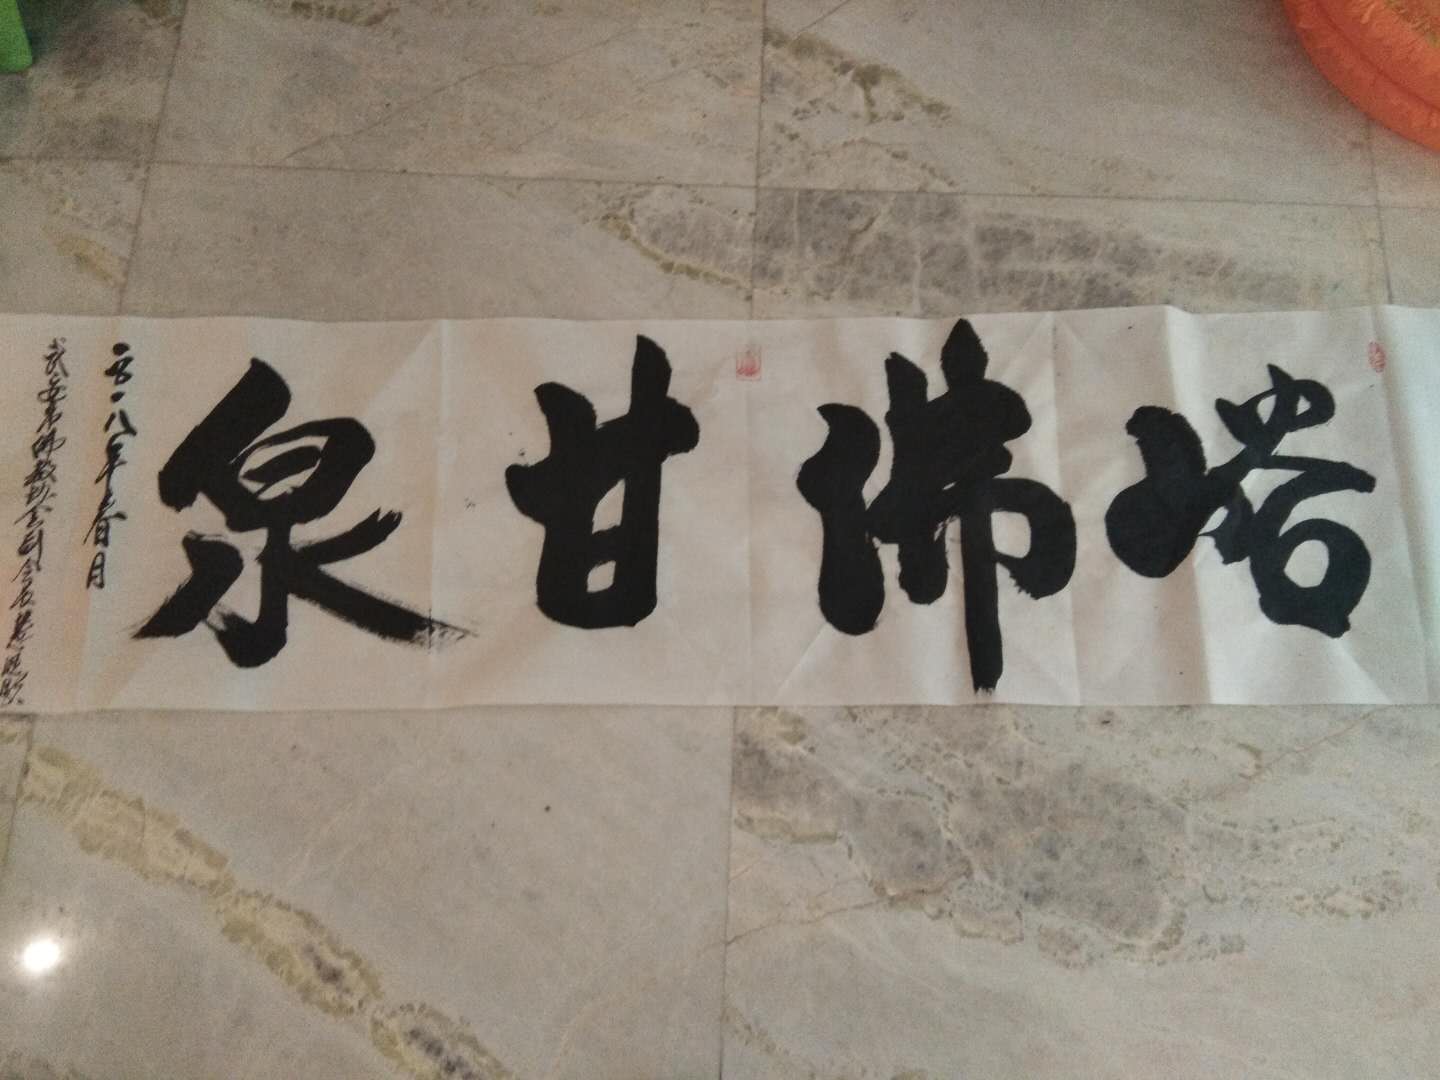 塔沸甘泉
二〇一八年春月
武安市佛教协会副会长